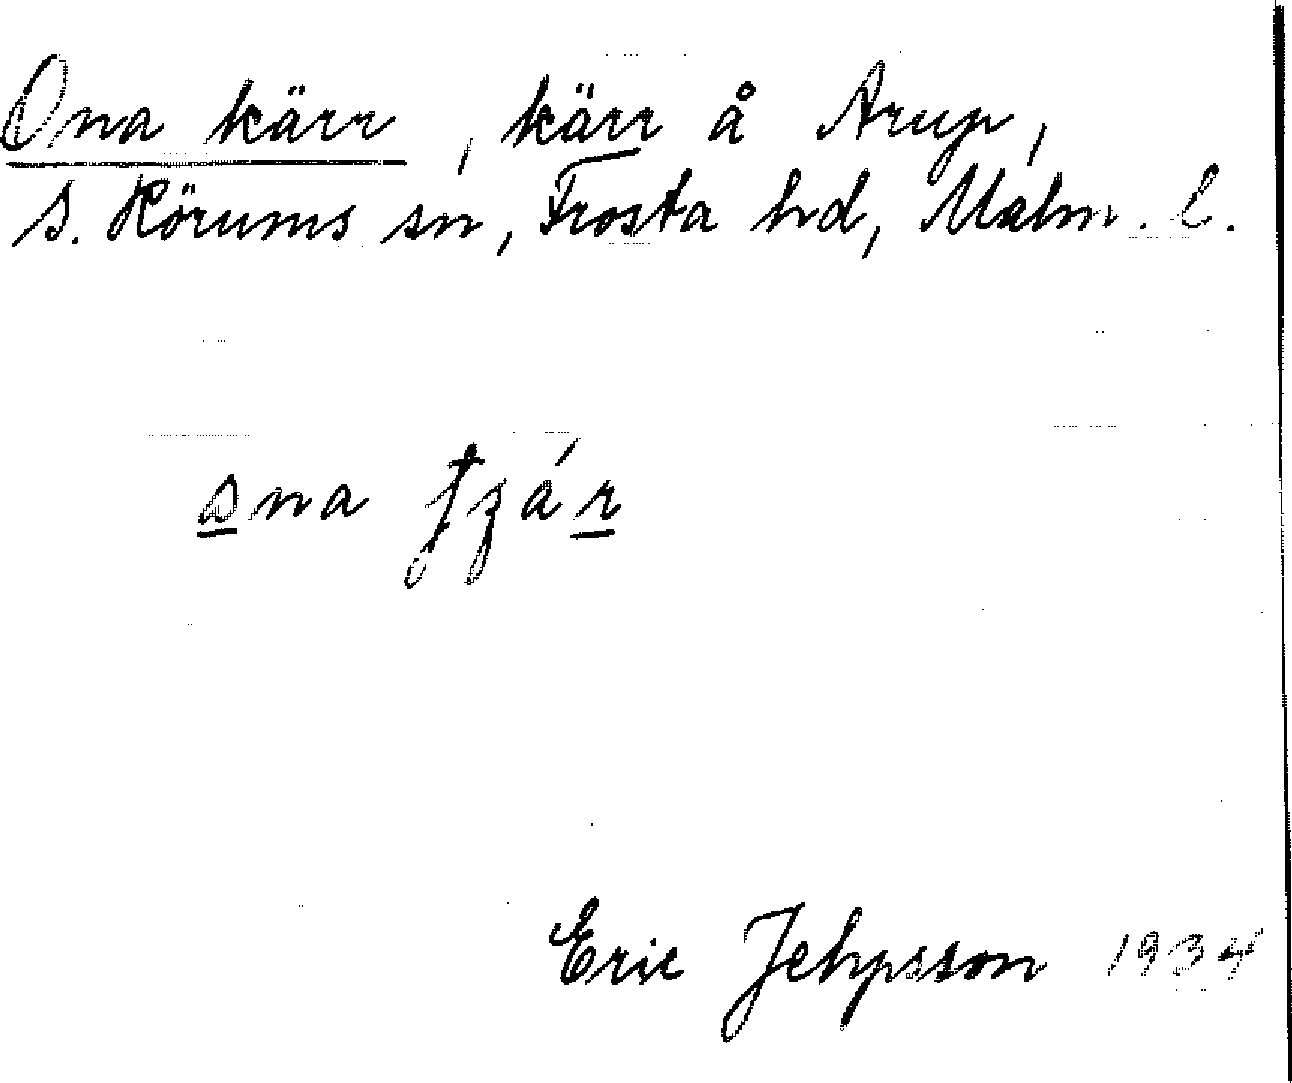 Ona kärr, kärr å Arup,
S. Rörums sn, Frosta hd, Malm. l.
Eric Jehpsson 1934